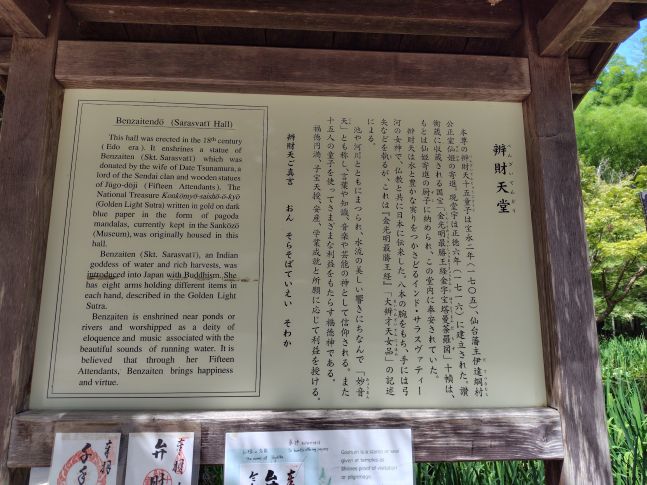 Benzaitendō (Sarasvatī Hall)
This hall was erected in the 18th century
(Edo era). It enshrines a statue of
Benzaiten (Skt. Sarasvatī) which was
donated by the wife of Date Tsunamura, a
lord of the Sendai clan and wooden statues
of Jūgo-dōji (Fifteen Attendants). The
National Treasure Konkōmyō-saishō-ō-kyō
(Golden Light Sutra) written in gold on dark
blue paper in the form of pagoda
mandalas, currently kept in the Sankōzō
(Museum), was originally housed in this
hall.
Benzaiten (Skt. Sarasvatī), an Indian
goddess of water and rich harvests, was
introduced into Japan with Buddhism. She
has eight arms holding different items in
each hand, described in the Golden Light
Sutra.
Benzaiten is enshrined near ponds or
rivers and worshipped as a deity of
eloquence and music associated with the
beautiful sounds of running water. It is
believed that through her Fifteen
Attendants, Benzaiten brings happiness
and virtue.
辨財天堂
べんざいてんどう
本尊の辨財天十五童子は宝永二年(一七〇五)、仙台藩主伊達綱村
公正室仙姫の寄進。現堂宇は正徳六年(一七一六)に建立された。讃
衡蔵に収蔵される国宝「金光明最勝王経金字宝塔曼荼羅図」十幀は、
もとは仙姫寄進の厨子に納められ、この堂内に奉安されていた。
辨財天は水と豊かな実りをつかさどるインド・サラスヴァティー
河の女神で、仏教と共に日本に伝来した。八本の腕をもち、手には弓
矢などを執るが、これは『金光明最勝王経』「大辯才天女品」の記述
による。
池や河川とともにまつられ、水流の美しい響きにちなんで「妙音
天」とも称し、言葉や知識、音楽や芸能の神として信仰される。また
十五人の童子を使ってさまざまな利益をもたらす福徳神である。
福徳円満、子宝天授、安産、学業成就と所願に応じて利益を授ける。
辨財天ご真言 おん そらそばていえい そわか
奉拝
千手
奉拝
弁財
奉拝
Goshuin is a stamp or seal
given at temples as
Shrines proof of visitation
or pilgrimage.